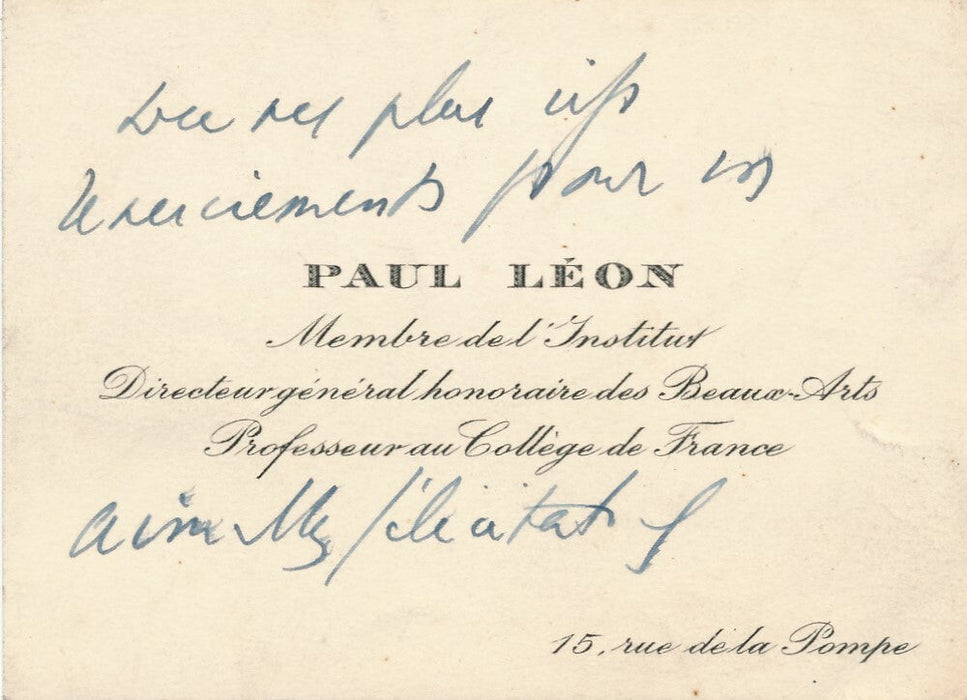 avec mes plus vifs
remerciements pour vos
PAUL LÉON
Membre de l'Institut
Directeur général honoraire des Beaux-Arts
Professeur au Collège de France
félicitat
15, rue de la Pompe